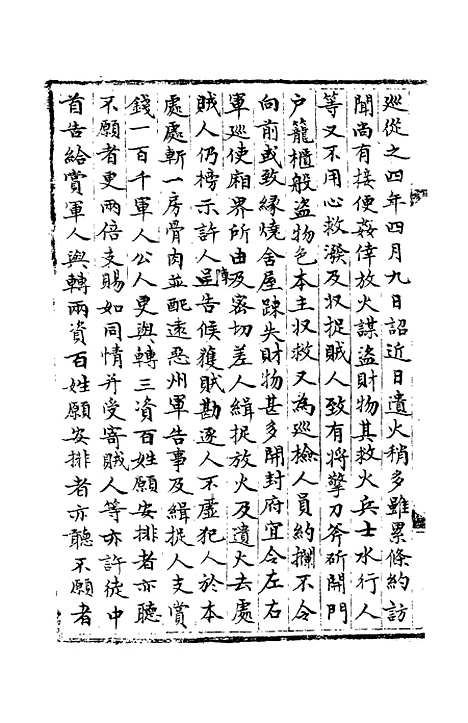 廵從之四年四月九日詔近日遺火稍多雖累條約訪
聞尚有接便姦倖放火謀盗財物其救火兵士水行人
等又不用心救潑及収捉賊人致有將擎刀斧斫開門
户籠櫃般盗物色本主収救又為廵檢人員約攔不令
向前或致緣燒舍屋踈失財物甚多開封府宜令左右
軍廵使廂界所由及客切差人緝捉放火及遺火去處
賊人仍榜示許人陳告候獲賊勘逐人不虚犯人於本
處處斬一房骨肉並配遠惡州軍告事及緝捉人支賞
錢一百千軍人公人更與轉三資百姓願安排者亦聽
不願者更兩倍支賜如同情并受寄賊人等亦許徒中
首告給賞軍人與轉兩資百姓願安排者亦聽不願者